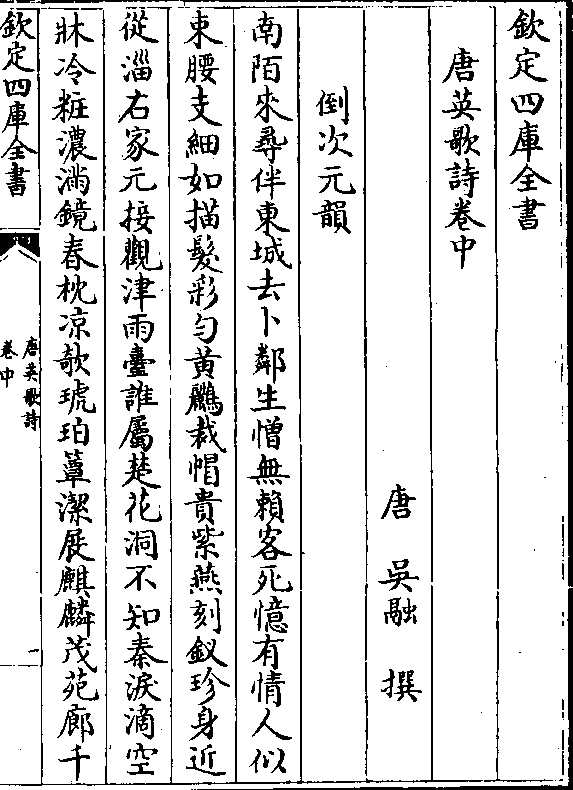 欽定四庫全書
唐英歌詩卷中
唐 吳融 撰
倒次元韻
南陌來尋伴東城去卜鄰生憎無賴客死憶有情人似
束腰支細如描髮彩勻黃鸝裁帽貴紫燕刻釵珍身近
從淄右家元接觀津雨臺誰屬楚花洞不知秦淚滴空
牀冷粧濃滿鏡春枕凉欹琥珀簟潔展麒麟茂苑廊千
欽定四庫全書
唐英歌詩
卷中
一